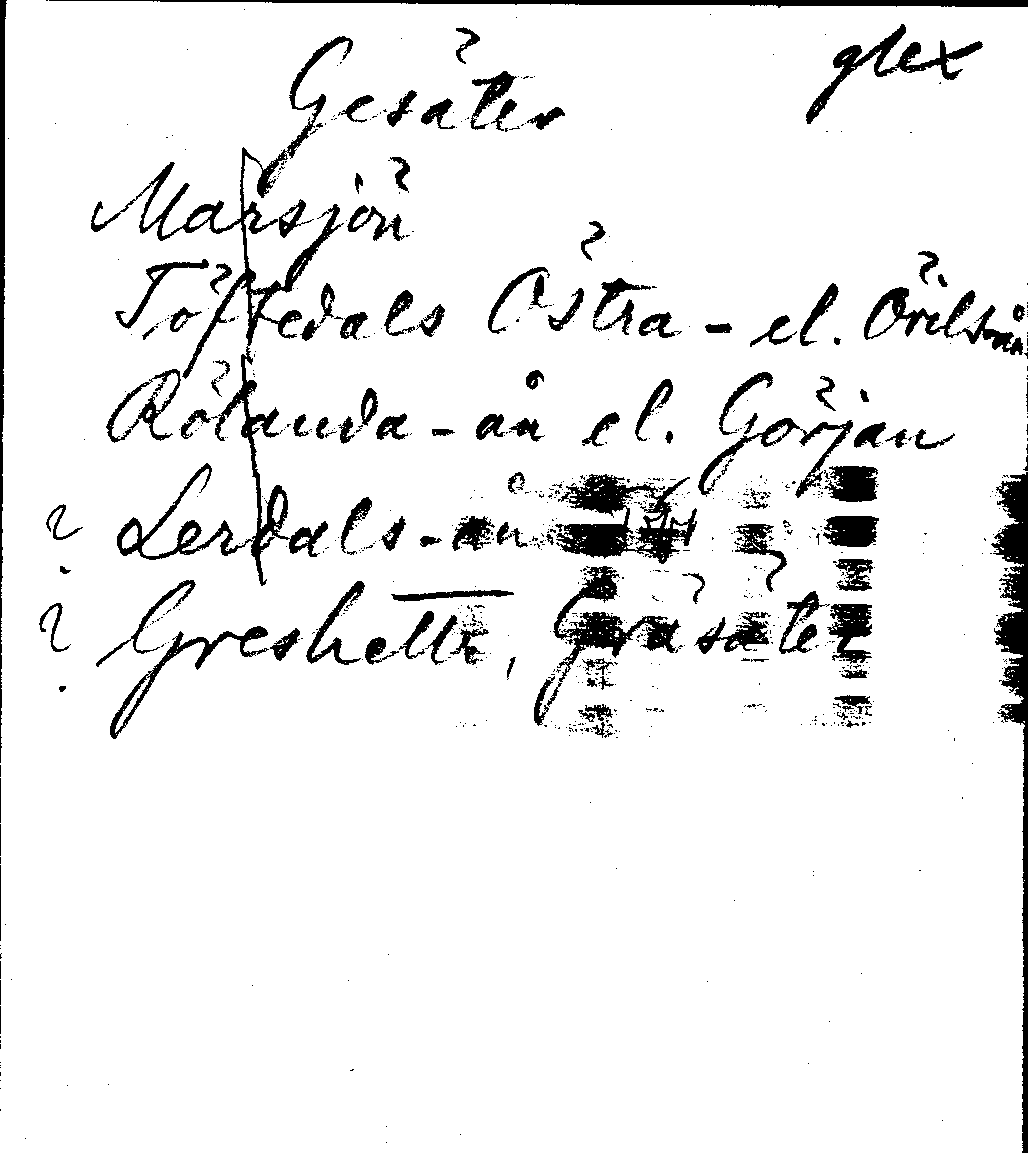 Gesäter glex
Marsjön
Töftedals Östra - el.
Rölanda - ån el. Görjan
? Lerdals - ån
? Greshelle, Gräsäter